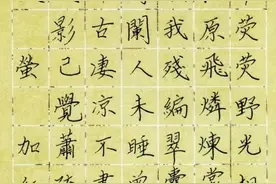 熒熒野光
原飛燐煉
我殘編翠囊
闌人未睡
古凄凉不
影己覺蕭
螢 加